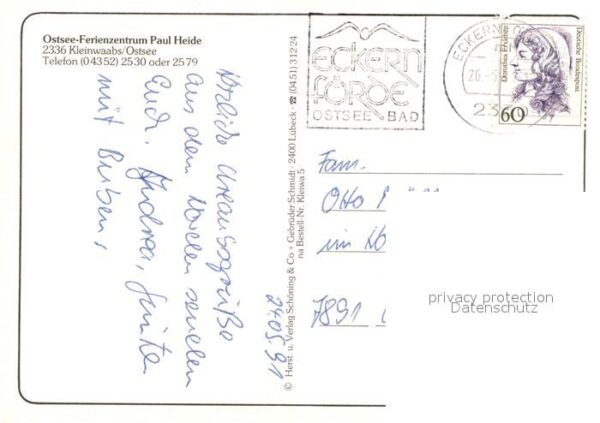 Ostsee-Ferienzentrum Paul Heide
2336 Kleinwaabs/Ostsee
Telefon (0 43 52) 25 30 oder 25 79
Herzliche Urlaubsgrüße
aus dem Norden senden
Euch. Andrea, Günter
mit Buben,
24.05.91
© Herst. u. Verlag Schöning & Co + Gebrüder Schmidt · 2400 Lübeck · ☎ (04 51) 3 12 24
na Bestell-Nr. Kleiwa 5
ECKERN
FÖRDE
OSTSEE BAD
ECKERN
26.-5
23
Dorothea Erxleben
Deutsche Bundespost
60
Fam.
Otto
im
7891
privacy protection
Datenschutz